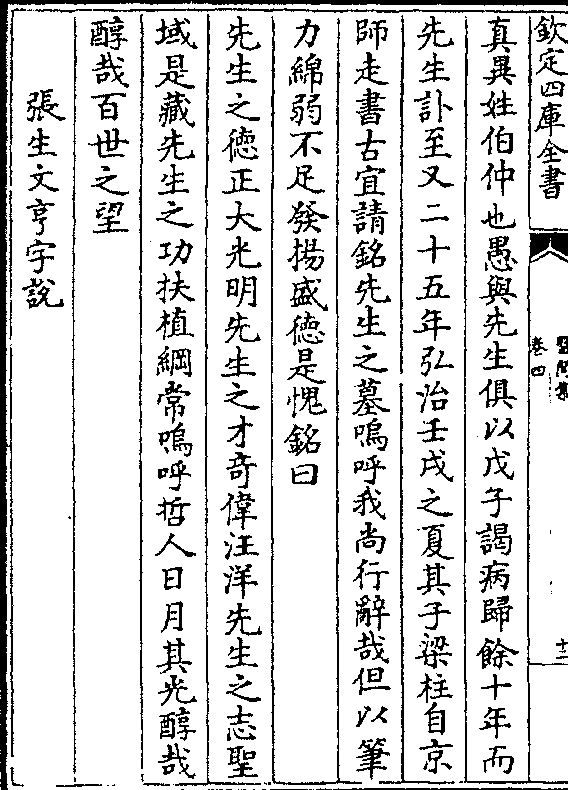 欽定四庫全書
卷四
十二
真異姓伯仲也愚與先生俱以戊子謁病歸餘十年而
先生訃至又二十五年弘治壬戌之夏其子梁柱自京
師走書古宜請銘先生之墓嗚呼我尚行辭哉但以筆
力綿弱不足發揚盛德是愧銘曰
先生之德正大光明先生之才奇偉汪洋先生之志聖
域是藏先生之功扶植綱常嗚呼哲人日月其光醇哉
醇哉百世之望
張生文亨字說